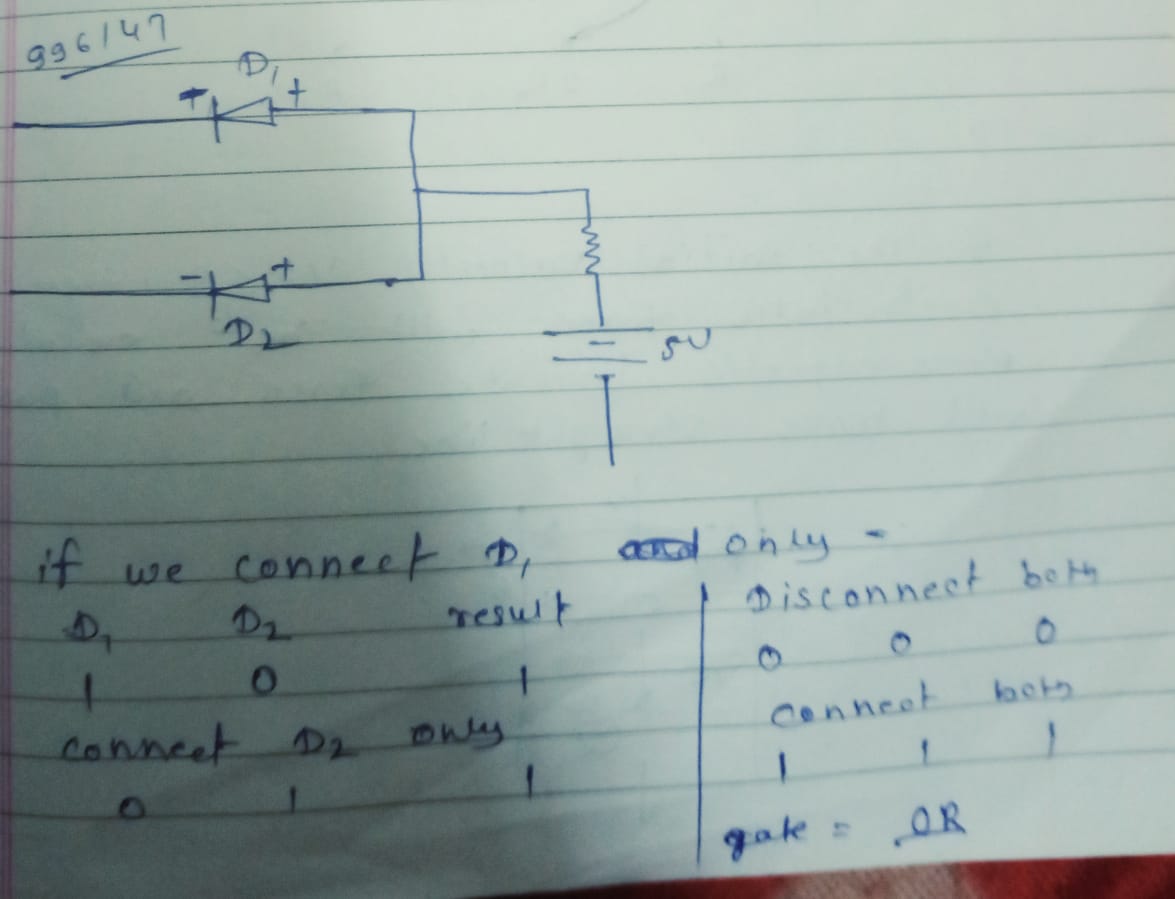 996147
D1
+ +
- +
D2
- 5V
if we connect D1 only -
D1 D2 result
1 0 1
connect D2 only
0 1 1
Disconnect both
0 0 0
connect both
1 1 1
gate = OR